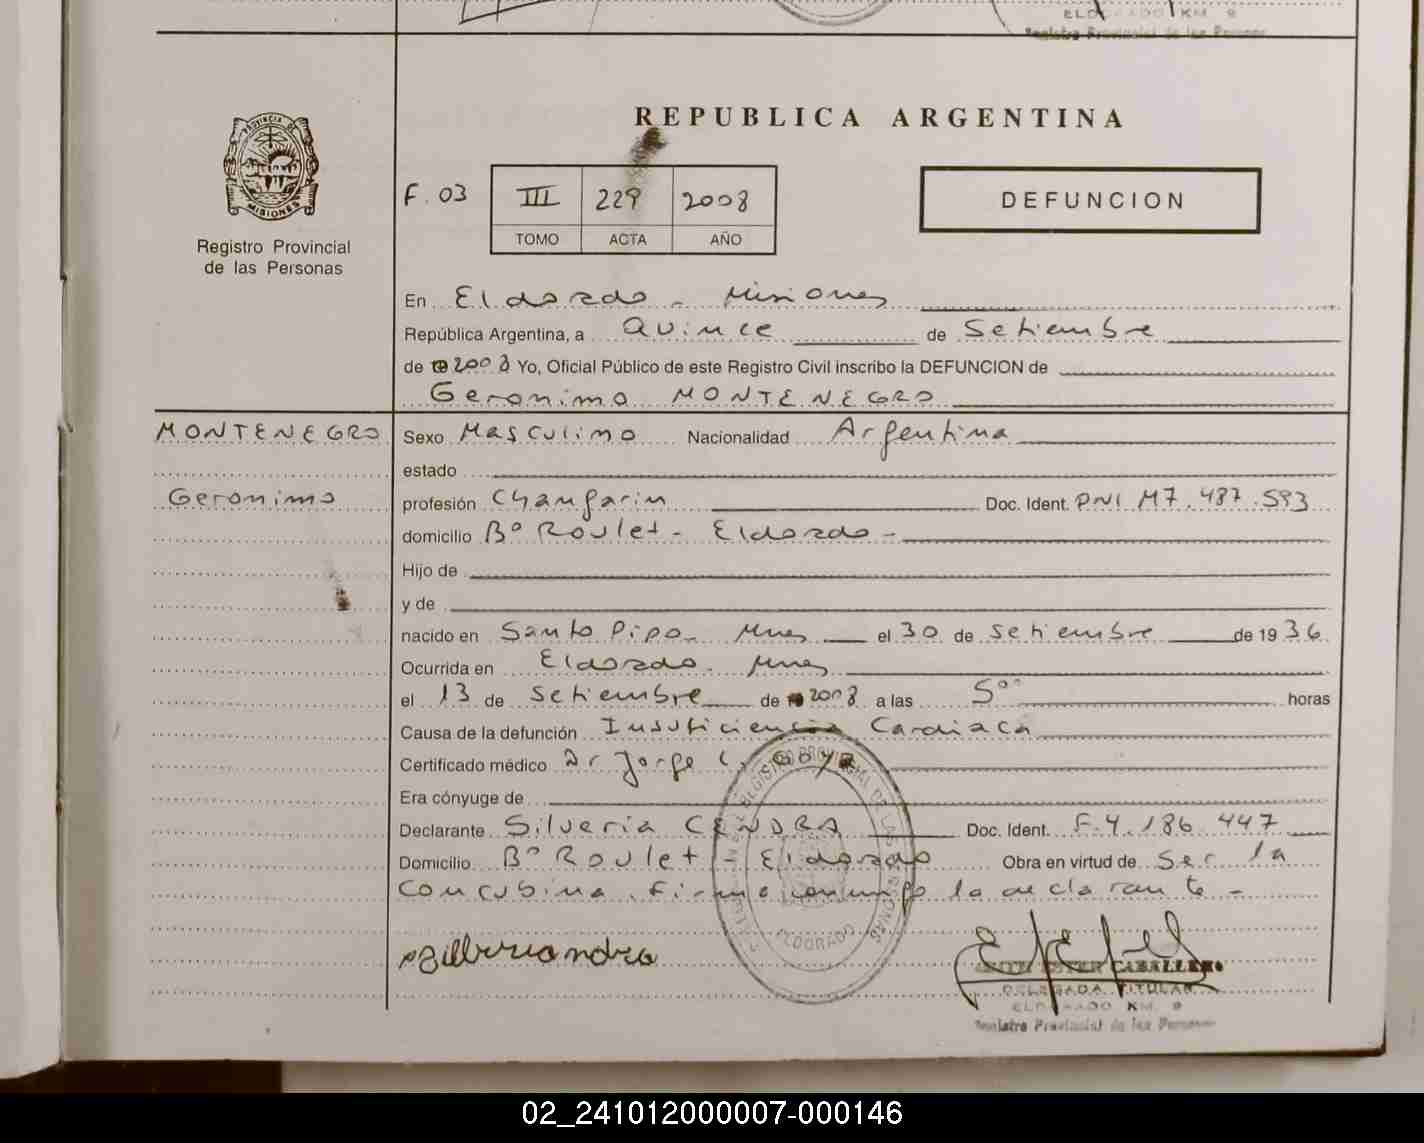 ELDORADO KM. 9
Registro Provincial de las Personas
REPUBLICA ARGENTINA
PROVINCIA DE
MISIONES
Registro Provincial
de las Personas
F. 03 III 229 2008
TOMO ACTA AÑO
DEFUNCION
En Eldorado - Misiones
República Argentina, a Quince de Setiembre
de 2008 Yo, Oficial Público de este Registro Civil inscribo la DEFUNCION de
Geronimo MONTENEGRO
MONTENEGRO
Geronimo
Sexo Masculino Nacionalidad Argentina
estado
profesión Changarin Doc. Ident. DNI M7.487.593
domicilio Bº Roulet - Eldorado -
Hijo de
y de
nacido en Santo Pipo - Mnes el 30 de Setiembre de 1936
Ocurrida en Eldorado - Mnes
el 13 de Setiembre de 2008 a las 5ºº horas
Causa de la defunción Insuficiencia Cardiaca
Certificado médico Dr Jorge C. Goya
Era cónyuge de
Declarante Silveria CENDRA Doc. Ident. F.4.186.447
Domicilio Bº Roulet - Eldorado Obra en virtud de Ser la
Concubina. Firma conmigo la declarante -
REGISTRO PROVINCIAL DE LAS PERSONAS
ELDORADO
ESTER CABALLERO
DELEGADA TITULAR
ELDORADO KM. 9
Registro Provincial de las Personas
02_241012000007-000146